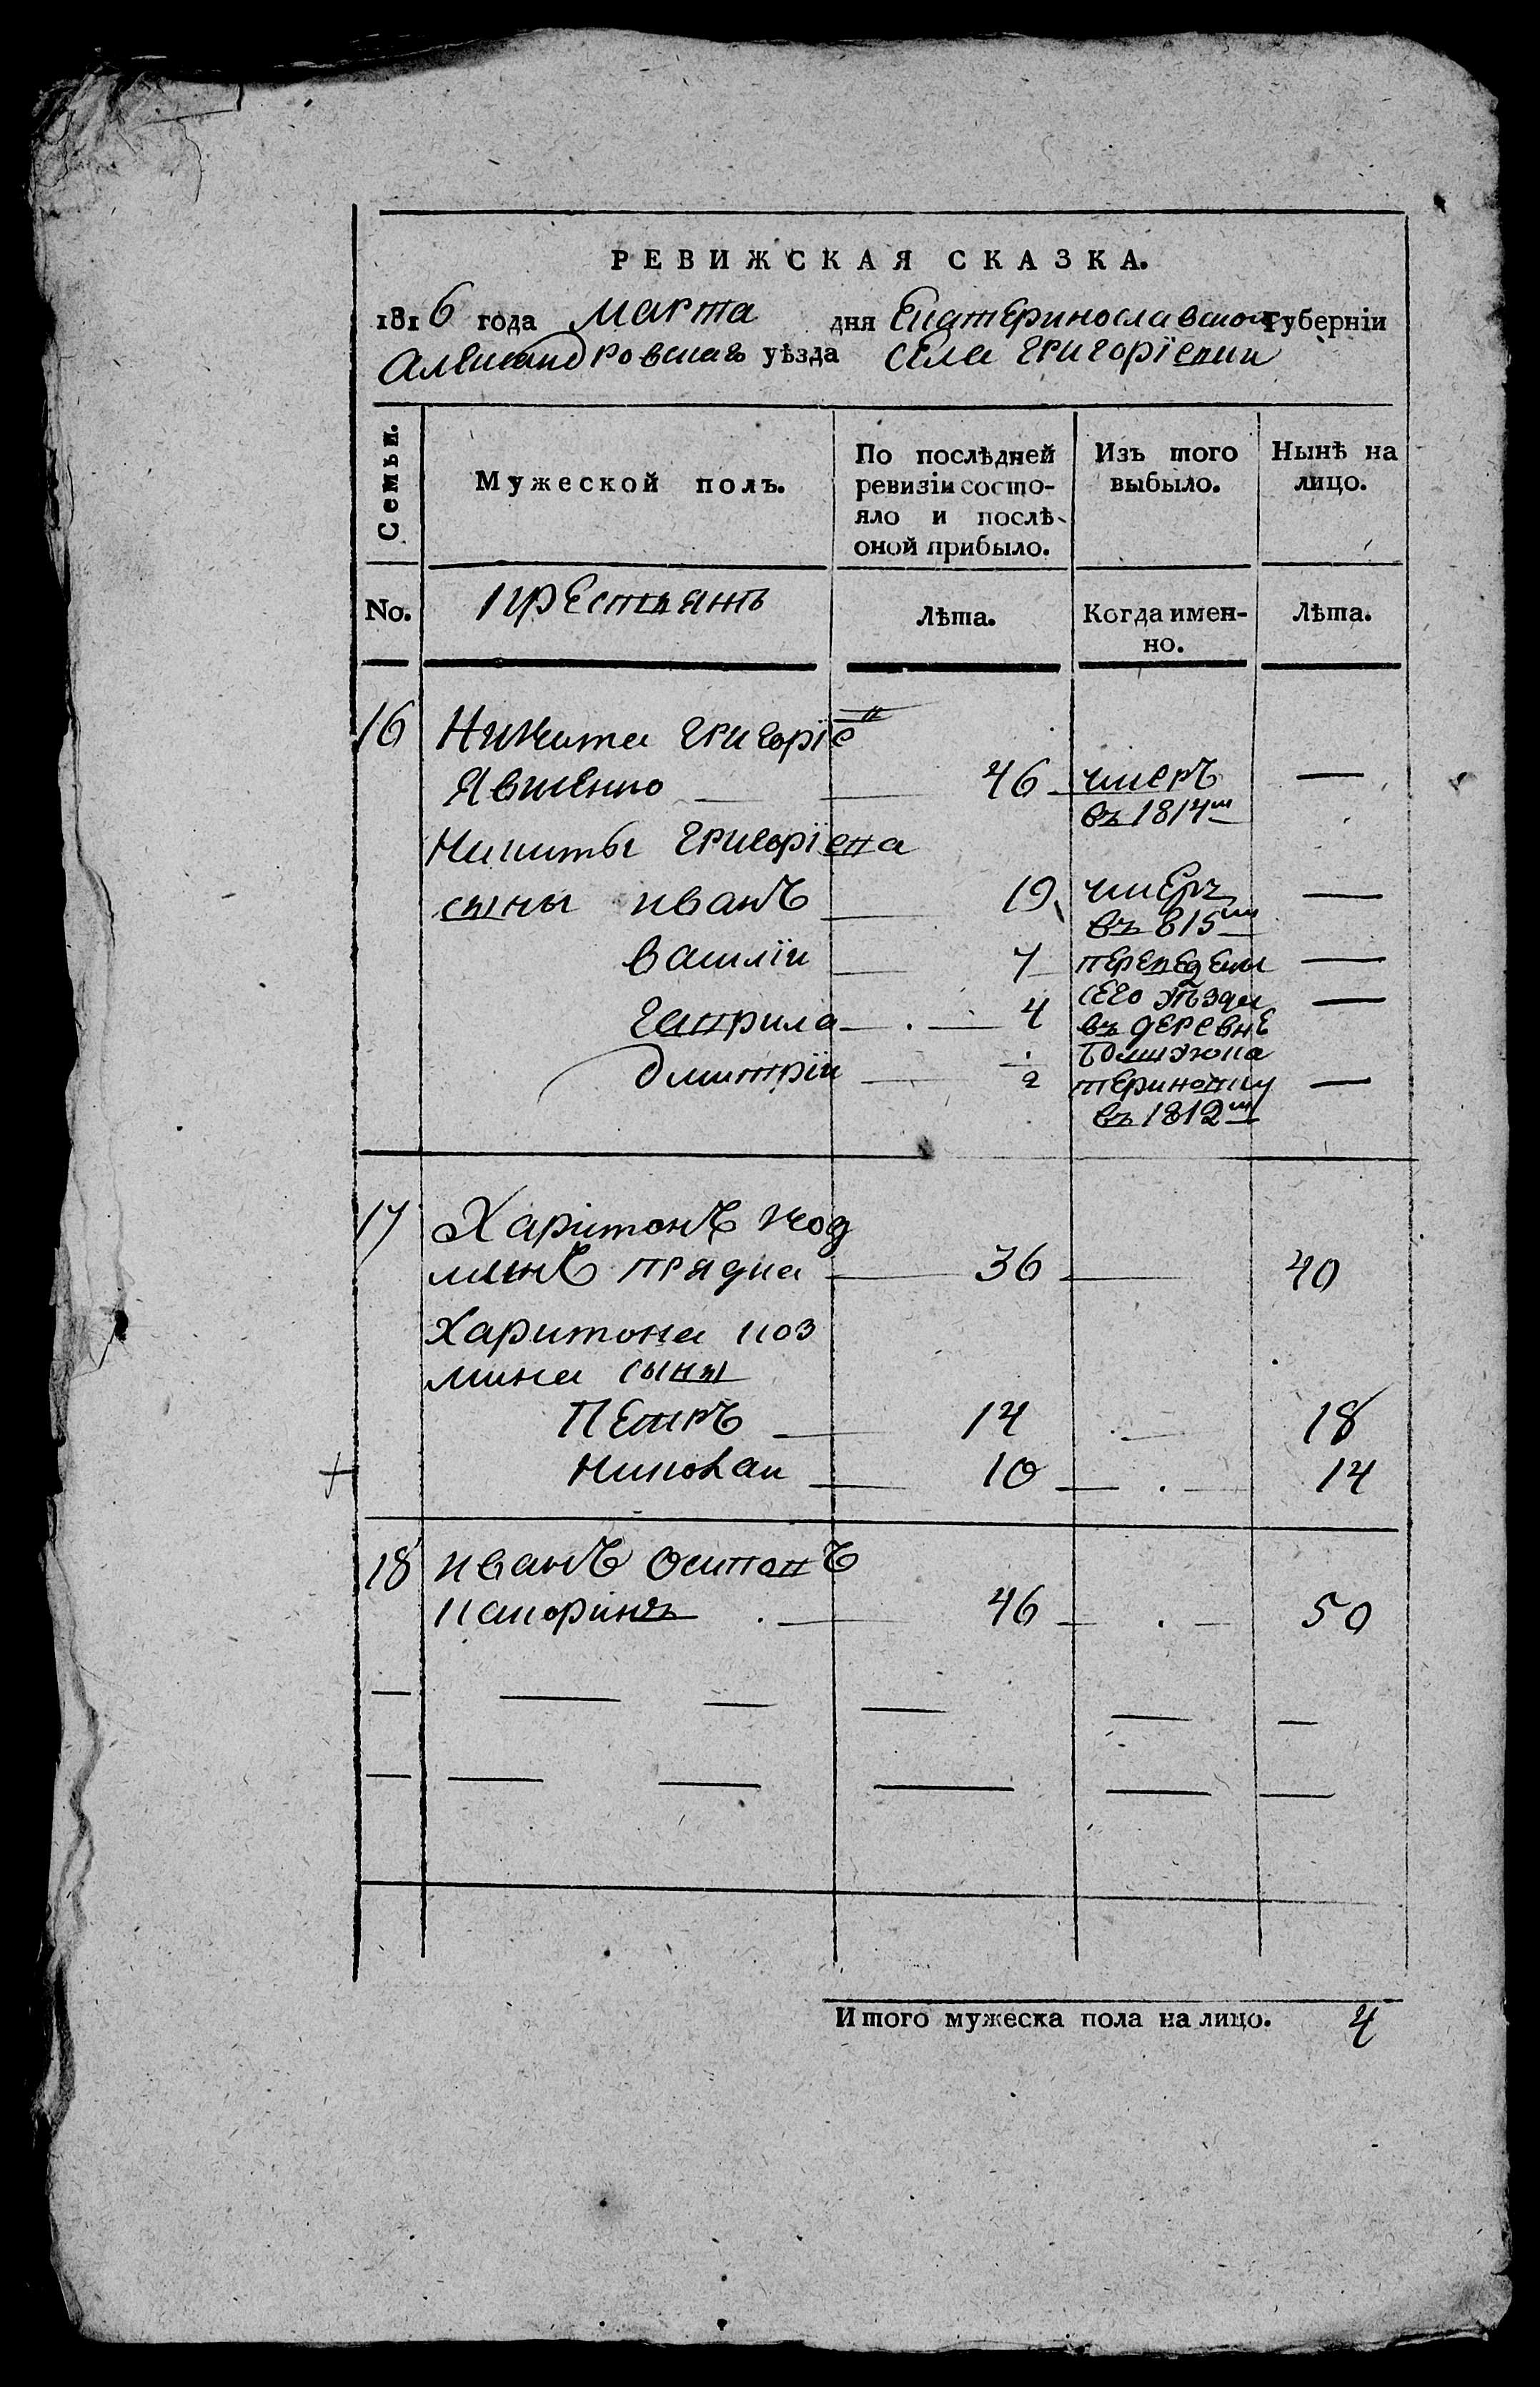 РЕВИЖСКАЯ СКАЗКА.
1816 года марта дня Екатеринославской губерніи
Александровскаго уѣзда села Григорїевки
Семьи. Мужеской полъ. По послѣдней ревизіи состояло и послѣ оной прибыло. Изъ того выбыло. Нынѣ на лицо.
No. крестьянъ Лѣта. Когда именно. Лѣта.
16 Никита Григорїев
Явченко 46 умеръ —
въ 1814м
Никиты Григорїева
сыны иванъ 19 умеръ —
въ 815м
василїи 7 переведены —
Гаврила 4 сего уѣзда —
въ деревне
дмитрїи 2 —
въ 1812м
17 Харітонъ коз
минъ прядка 36 40
Харитона коз
мина сыны
Петръ 14 18
+ николаи 10 14
18 иванъ осиповъ
46 50
Итого мужеска пола на лицо. 4